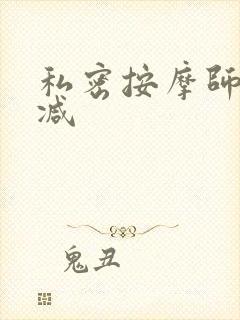 私密按摩師
减
鬼丑